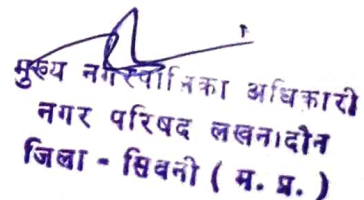 मुख्य नगरपालिका अधिकारी
नगर परिषद लखनादोन
जिला - सिवनी ( म. प्र. )